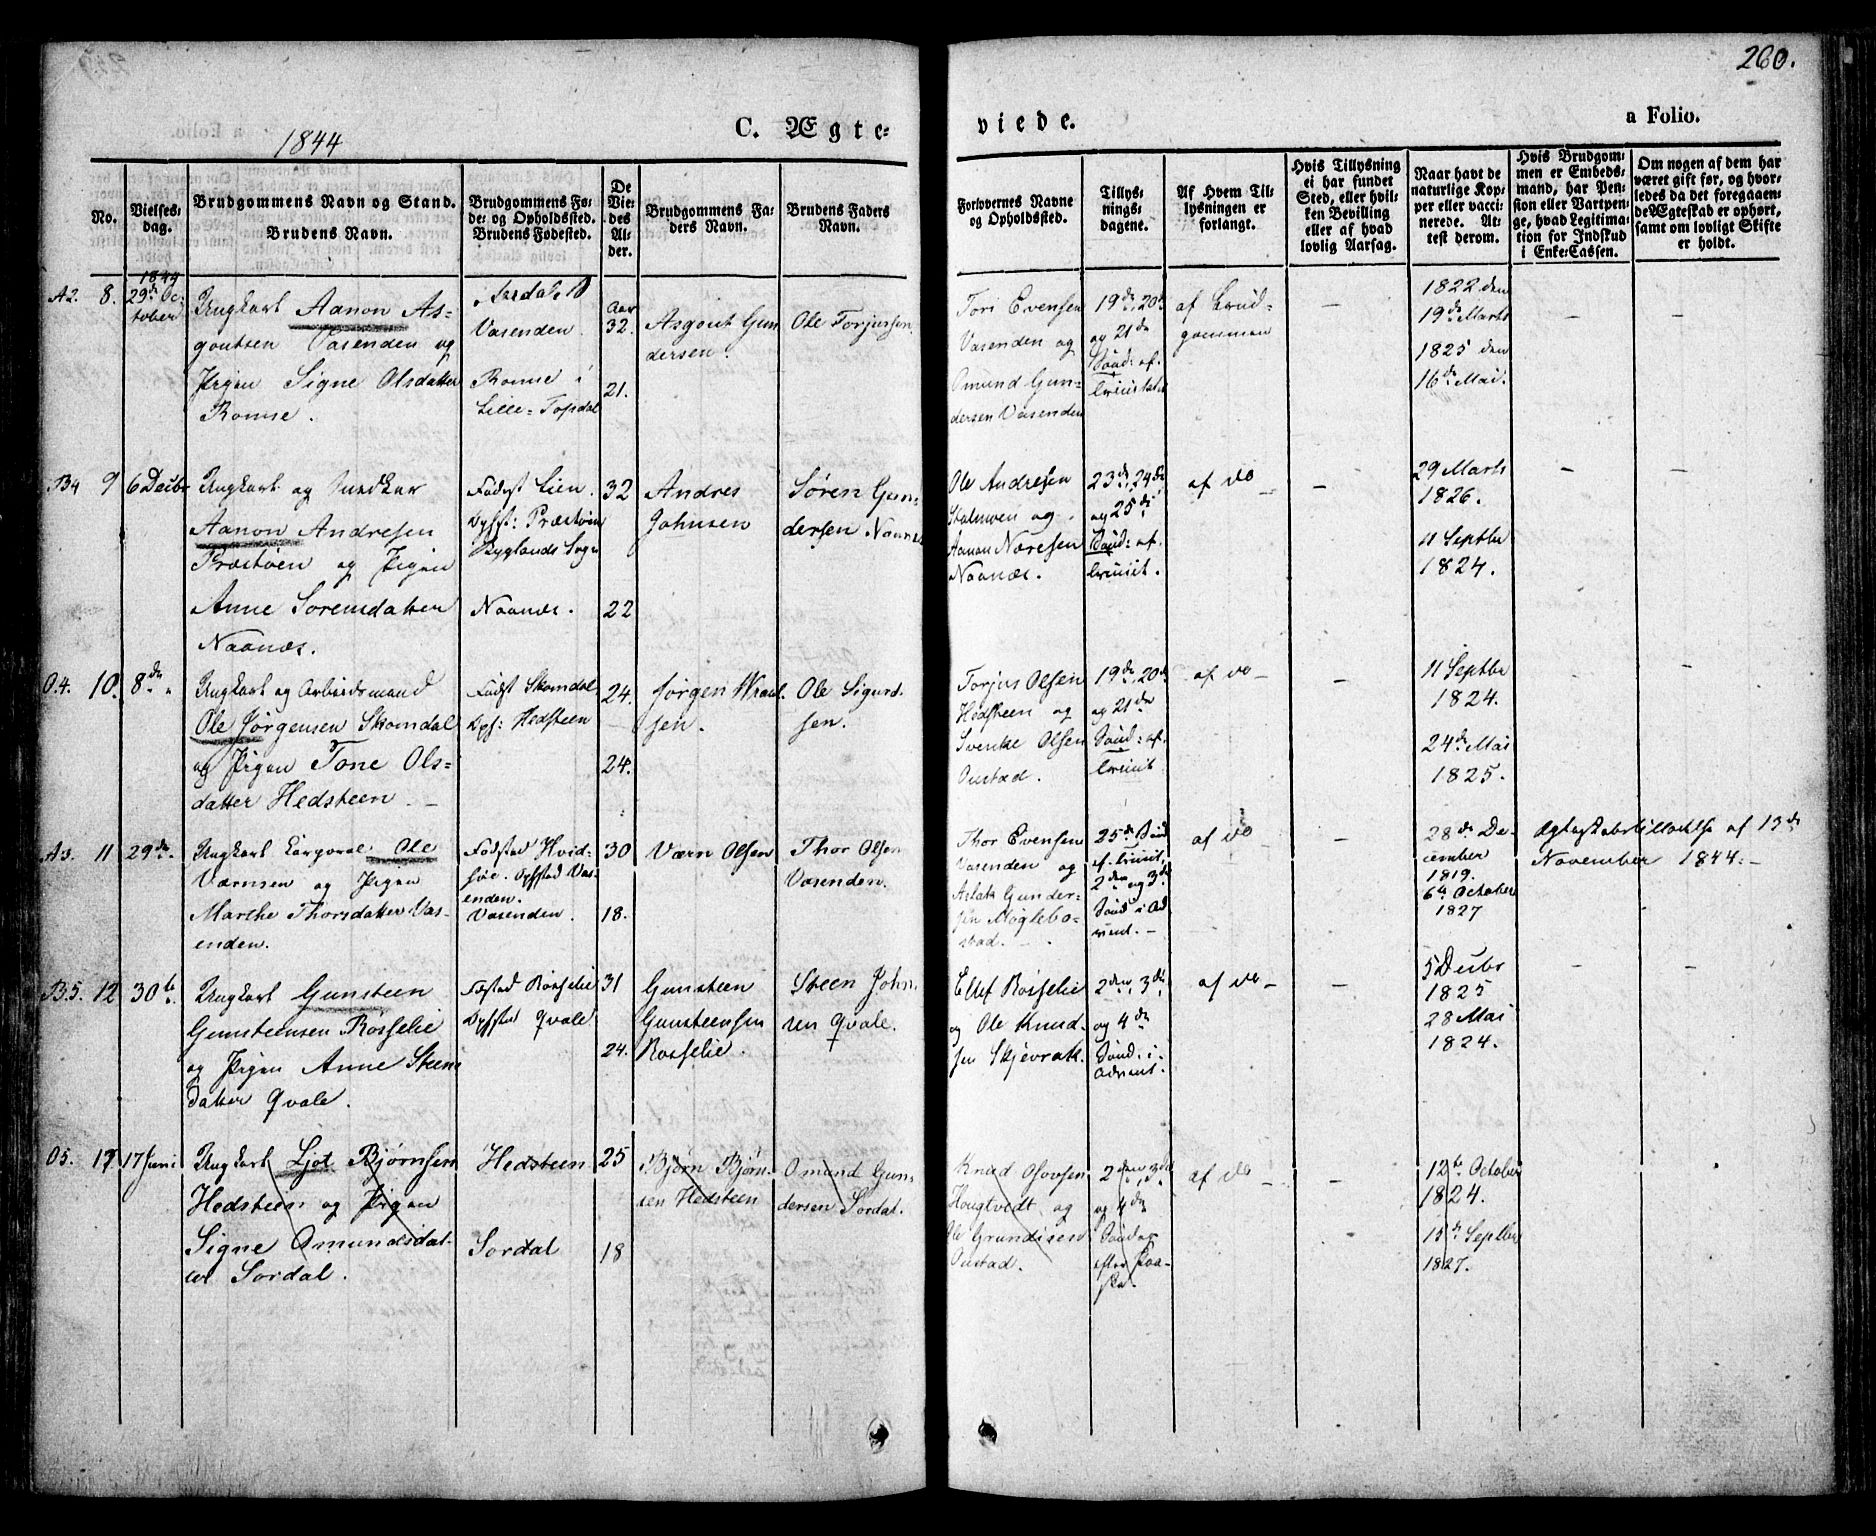 260.
1844
C. Ægte-
viede.
a Folio.
No.
Vielses-
dag.
Brudgommens Navn og Stand.
Brudens Navn.
Brudgommens Fø-
de- og Opholdssted.
Brudens Fødested.
De
Vie-
des
Al-
der.
Brudgommens Fa-
ders Navn.
Brudens Faders
Navn.
Forlovernes Navne
og Opholdssted.
Tillys-
nings-
dagene.
Af Hvem Til-
lysningen er
forlangt.
Hvis Tillysning
ei har fundet
Sted, eller hvil-
ken Bevilling
eller af hvad
lovlig Aarsag.
Naar havt de
naturlige Kop-
per eller vacci-
nerede. At-
test derom.
Hvis Brudgom-
men er Embeds-
mand, har Pen-
sion eller Vartpen-
ge, hvad Legitima-
tion for Indskud
i Enke-Cassen.
Om nogen af dem har
været gift før, og hvor-
ledes da det foregaaen-
de Ægteskab er ophørt,
samt om lovligt Skifte
er holdt.
A2. 8.
1844
29de Oc-
tober
Ungkarl Aanon As-
goutsen Vasenden og
Pigen Signe Olsdatter
Romse.
Vasenden.
Romse i
Lille-Topdal
Aar
32.
21.
Asgout Gun
dersen.
Ole Torjussen
Tori Evensen
Vasenden og
Omund Gun-
dersen Vasenden
19de, 20de
og 21de
Sønd: af
trinitatis
af Brud-
gommen
–
1822 den
19de Marts
1825 den
16de Mai.
–
–
B4 9
6 Decbr
Ungkarl og Snedker
Aanon Andresen
Præstøen og Pigen
Anne Sørensdatter
Naanæs.
Fødest Lien.
Opst: Præstøen
Byglands Sogn
Naanæs.
32
22
Andres
Johnsen
Søren Gun-
dersen Naanæs
Ole Andresen
og
Aanon
Naanæs.
23de, 24de
og 25de
Sønd: af.
trinit.
af do –
–
29 Marts
1826.
11 Septbr
1824.
–
–
O.4. 10.
8de "
Ungkarl og Arbeidsmand
Ole Jørgensen Skomdal
og Pigen Tone Ols-
datter Hedsteen. –
Født Skomdal
Ops: Hedsteen
24.
24.
Jørgen
sen.
Ole Sigurd-
sen.
Torjus Olsen
Hedsteen og
Svenke Olsen
Oustad.
19de, 20de
og 21de
Sønd: af.
trinit
af do –
–
11 Septbr
1824.
24de Mai
1825.
–
A3. 11
29de.
Ungkarl Ole
Værnsen og Pigen
Marthe Thorsdatter Vas-
enden.
Fødsted Hvid-
søe. Opsted Vas-
enden.
Vasenden.
30
18.
Værn Olsen
Thor Olsen
Vasenden.
Thor Evensen
Vasenden og
Aslak Gunder-
sen Møglebo-
stad. –
25de Sønd
af. trinit,
2den og 3de
Sønd i Ad
vent. –
af do
–
28de De-
cember
1819.
6te October
1827
Ægteskabstilladelse af 13de
November 1844. –
B5. 12
30te.
Ungkarl Gunsteen
Gunsteensen Rosselie
og Pigen Anne Steens
datter Qvale.
Føsted Rosselie
Opsted Qvale.
31
24.
Gunsteen
Gunsteensen
Rosselie.
Steen John-
sen Qvale.
Ellef Rosselie
og Ole Knud-
sen Skjevrak.
2den, 3de
og 4de
Sønd: i
Advent.
af do –
–
5 Decbr
1825
28 Mai
1824.
–
–
O5. 17
17 Juni
Ungkarl Ljot Bjørnsen
Hedsteen og Pigen
Signe Omundsdat-
ter Sordal.
Hedsteen
Sordal
25
18
Bjørn Bjørn-
sen Hedsteen
Omund Gun-
dersen Sordal.
Knud
Hougtvedt og
Ole Grundesen
Oustad.
2den, 3de
og 4de
Søndag
efter Paa-
ske.
af do –
–
12te October
1824.
15de Septbr
1827.